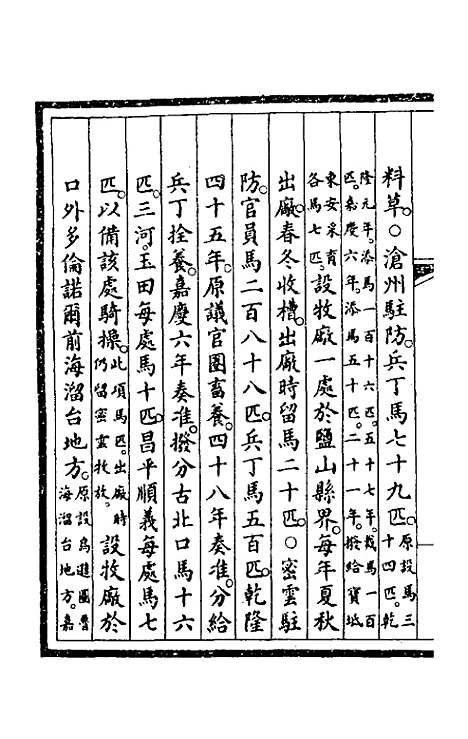 料草。○滄州駐防。兵丁馬七十九匹。原設馬三十四匹。乾
隆元年。添馬一百十六匹。五十七年。裁馬一百
匹。嘉慶六年。添馬五十匹。二十一年。撥給寶坻
東安采育各馬七匹。設牧廠一處於鹽山縣界。每年夏秋
出廠。春冬收槽。出廠時留馬二十匹。○密雲駐
防。官員馬二百八十八匹。兵丁馬五百匹。乾隆
四十五年。原議官圈畜養。四十八年奏准。分給
兵丁拴養。嘉慶六年奏准。撥分古北口馬十六
匹。三河。玉田每處馬十匹。昌平順義每處馬七
匹。以備該處騎操。此項馬匹。出廠時仍留密雲牧放。設牧廠於
口外多倫諾爾前海溜台地方。原設烏進圖魯海溜台地方。嘉